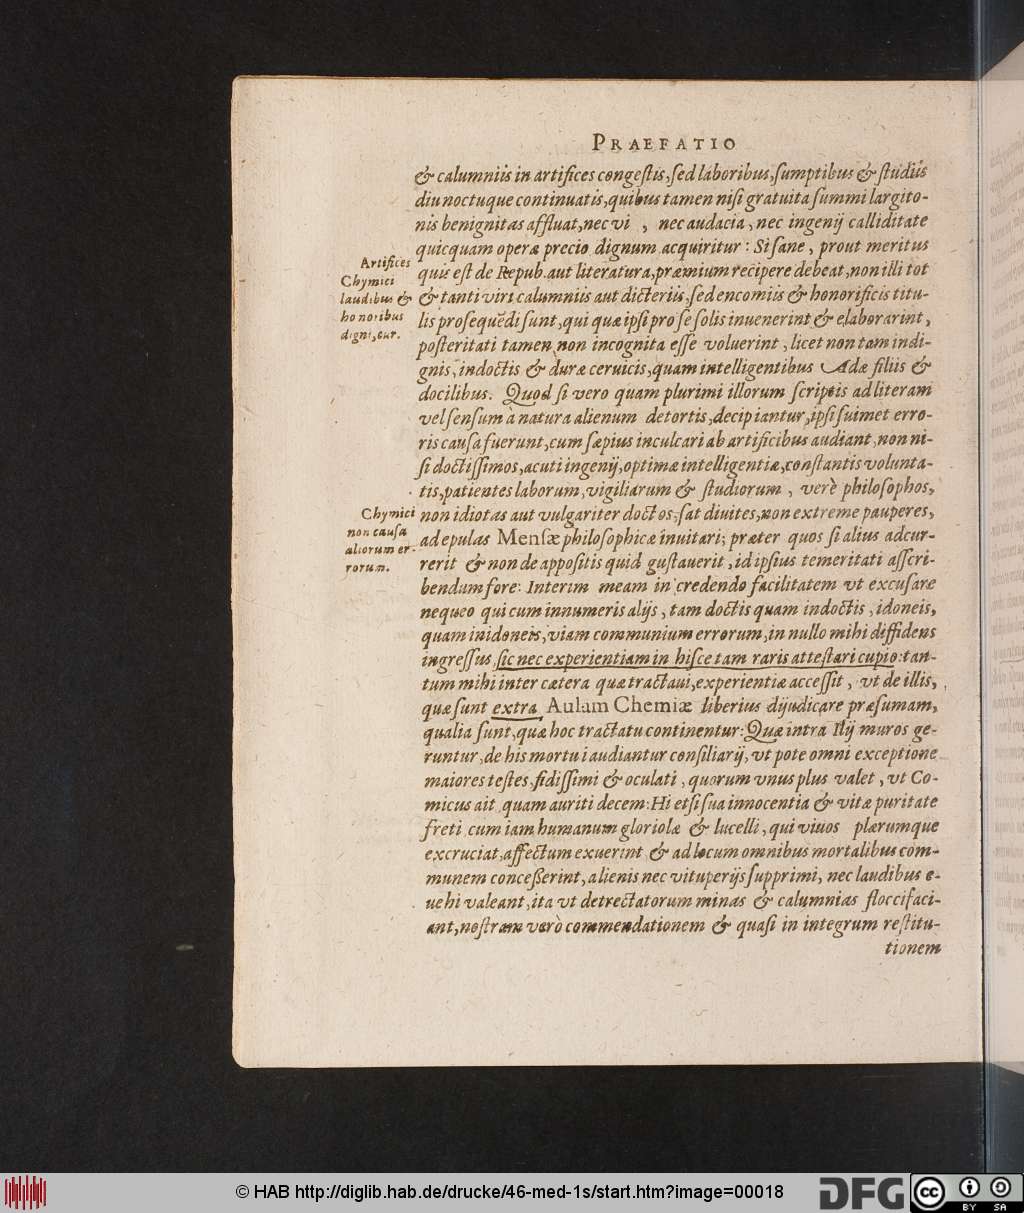 PRAEFATIO
& calumniis in artifices congestis, sed laboribus, sumptibus & studiis
diu noctuque continuatis, quibus tamen nisi gratuita summi largito-
nis benignitas affluat, nec vi , nec audacia, nec ingenij calliditate
quicquam operæ precio dignum acquiritur: Si sane, prout meritus
quis est de Repub. aut literatura, præmium recipere debeat, non illi tot
& tanti viri calumniis aut dicteriis, sed encomiis & honorificis titu-
lis prosequẽdi sunt, qui quæ ipsi pro se solis inuenerint & elaborarint,
posteritati tamen non incognita esse voluerint, licet non tam indi-
gnis, indoctis & duræ ceruicis, quam intelligentibus Adæ filiis &
docilibus. Quod si vero quam plurimi illorum scriptis ad literam
vel sensum à natura alienum detortis, decipiantur, ipsi suimet erro-
ris causa fuerunt, cum sæpius inculcari ab artificibus audiant, non ni-
si doctissimos, acuti ingenij, optimæ intelligentiæ, constantis volunta-
tis, patientes laborum, vigiliarum & studiorum, verè philosophos,
non idiotas aut vulgariter doctos, sat diuites, non extreme pauperes,
ad epulas Mensæ philosophicæ inuitari; præter quos si alius adcur-
rerit & non de appositis quid gustauerit, id ipsius temeritati asscri-
bendum fore: Interim meam in credendo facilitatem vt excusare
nequeo qui cum innumeris alijs, tam doctis quam indoctis, idoneis,
quam inidoneis, viam communium errorum, in nullo mihi diffidens
ingressus, sic nec experientiam in hisce tam raris attestari cupio: tan-
tum mihi inter cætera quæ tractaui, experientiæ accessit, vt de illis,
quæ sunt extra Aulam Chemiæ liberius dijudicare præsumam,
qualia sunt, quæ hoc tractatu continentur: Quæ intra Ilij muros ge-
runtur, de his mortui audiantur consiliarij, vt pote omni exceptione
maiores testes, fidissimi & oculati, quorum vnus plus valet, vt Co-
micus ait, quam auriti decem: Hi etsi sua innocentia & vitæ puritate
freti, cum iam humanum gloriolæ & lucelli, qui viuos plærumque
excruciat, affectum exuerint & ad locum omnibus mortalibus com-
munem concesserint, alienis nec vituperijs supprimi, nec laudibus e-
uehi valeant, ita vt detrectatorum minas & calumnias floccifaci-
ant, nostram verò commendationem & quasi in integrum restitu-
tionem
Artifices
Chymici
laudibus &
honoribus
digni, cur.
Chymici
non causa
aliorum er-
rorum.
© HAB http://diglib.hab.de/drucke/46-med-1s/start.htm?image=00018
DFG
cc BY SA